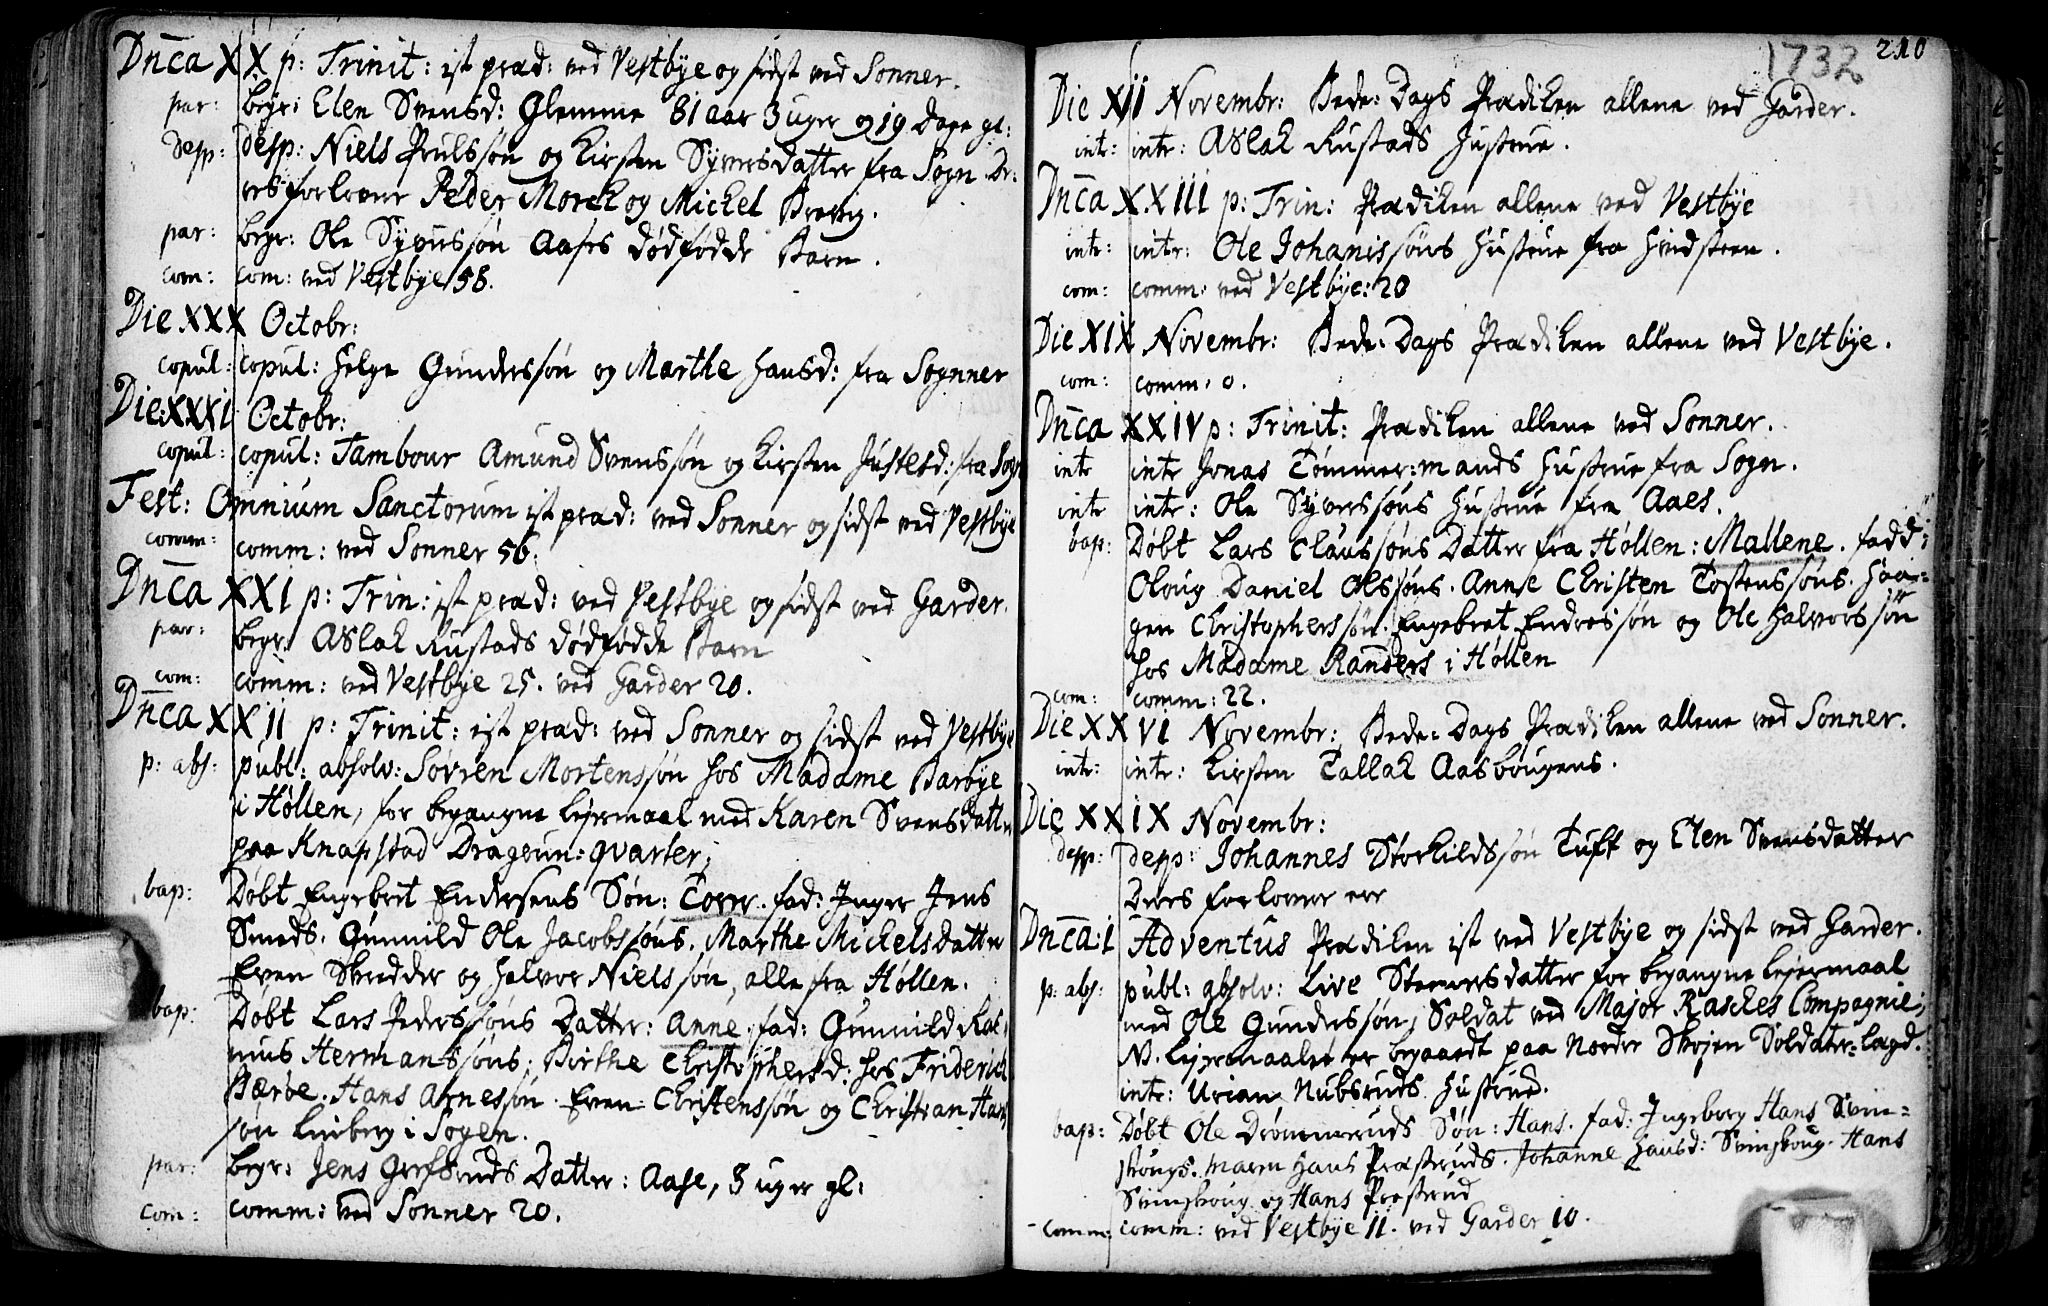 Dn̄ca XX p: Trinit: ist præd: ved Vestbye og sidst ved Sonner.
par: begr: Elen Svensd: Glemme 81 aar 3 uger og 19 Dage gl:
desp: desp: Niels Poulssøn og Kirsten Syversdatter fra Sogn. De-
res forlovere Peder Morck og Michel
par: begr: Ole Syverssøn Aases dødfødde Barn.
com: com: ved Vestbye 58.
Die XXX Octobr:
copul: copul: Helge Gunderssøn og Marthe Hansd: fra Sognner
Die XXXI Octobr:
copul: copul: Tambour Amund Svenssøn og Kirsten Justesd: fra Sogn
Fest: Omnium Sanctorum ist præd: ved Sonner og sidst ved Vestbye
comm: comm: ved Sonner 56.
Dn̄ca XXI p: Trin: ist præd: ved Vestbye og sidst ved Garder.
par: begr: Aslak Rustads dødfødde Barn
com: comm: ved Vestbye 25. ved Garder 20.
Dn̄ca XXII p: Trinit: ist præd: ved Sonner og sidst ved Vestbye
p: abs: publ: absolv: Sövren Mortenssøn hos Madame Barbye
i Høllen, for begangne lejermaal med Karen Svensdatter
paa Knapstad Dragoun: qvarter;
bap: Døbt Engebret Endersens Søn: . fad: Inger Jens
Smeds. Gunnild Ole Jacobssøns. Marthe Michelsdatter
Even Skredder og Halvor Nielssøn, alle fra Høllen.
bap: Døbt Lars Pederssøns Datter: Anne. fad: Gunnild Ras-
mus Hermanssøns; Birthe Christophersd: hos Friderich
Bærøe. Hans Arnessøn. Even Christenssøn og Christian Hans
søn Linberg i Sogen.
par: begr: Jens Grefsruds Datter: Aase, 3 uger gl:
com: comm: ved Sonner 20.
1732 210
Die XII Novembr: Bede: Dags Prædiken allene ved Garder.
intr: intr: Aslak Rustads Hustrue.
Dn̄ca XXIII p: Trin: Prædiken allene ved Vestbye
intr: intr: Ole Johanissøns Hustrue fra Hvidsteen.
com: comm: ved Vestbye: 20
Die XIX Novembr: Bede: Dags Prædiken allene ved Vestbye.
com: comm: 0.
Dn̄ca XXIV p: Trinit: Prædiken allene ved Sonner.
intr intr Jonas Tømmer:mands Hustrue fra Sogn.
intr intr: Ole Syverssøns Hustrue fra Aaes.
bap: Døbt Lars Claussøns Datter fra Høllen: Mallene. fadd:
Oloug Daniel Olssøns. Anne Christen Tostenssøns. Haa-
gen Christopherssøn. Engebret Endressøn og Ole Halvorssøn
hos Madame Randers i Høllen
com: comm: 22.
Die XXVI Novembr: Bede: Dags Prædiken allene ved Sonner.
intr: intr: Kirsten Tallak Aasbougens.
Die XXIX Novembr:
desp: desp: Johannes Storkildssøn Tuft og Elen Svensdatter
Deres forlover er
Dn̄ca: I Adventus Prædiken ist ved Vestbye og sidst ved Garder.
p: abs: publ: absolv: Live Steenersdatter for begangne lejermaal
med Ole Gunderssøn, Soldat ved Major Rasches Compagnie;
N. lejermaalet er begaaedt paa Norder Skojen Soldater-lagd.
intr: Urian Nubsruds Hustrue.
bap: Døbt Ole Drømmeruds Søn: Hans. fad: Ingeborg Hans Svin-
skougs. Maren Hans Præsteruds. Johanne Hansd: Svinskoug. Hans
Svinskoug og Hans Præsterud
comm: comm: ved Vestbye 11. ved Garder 10.